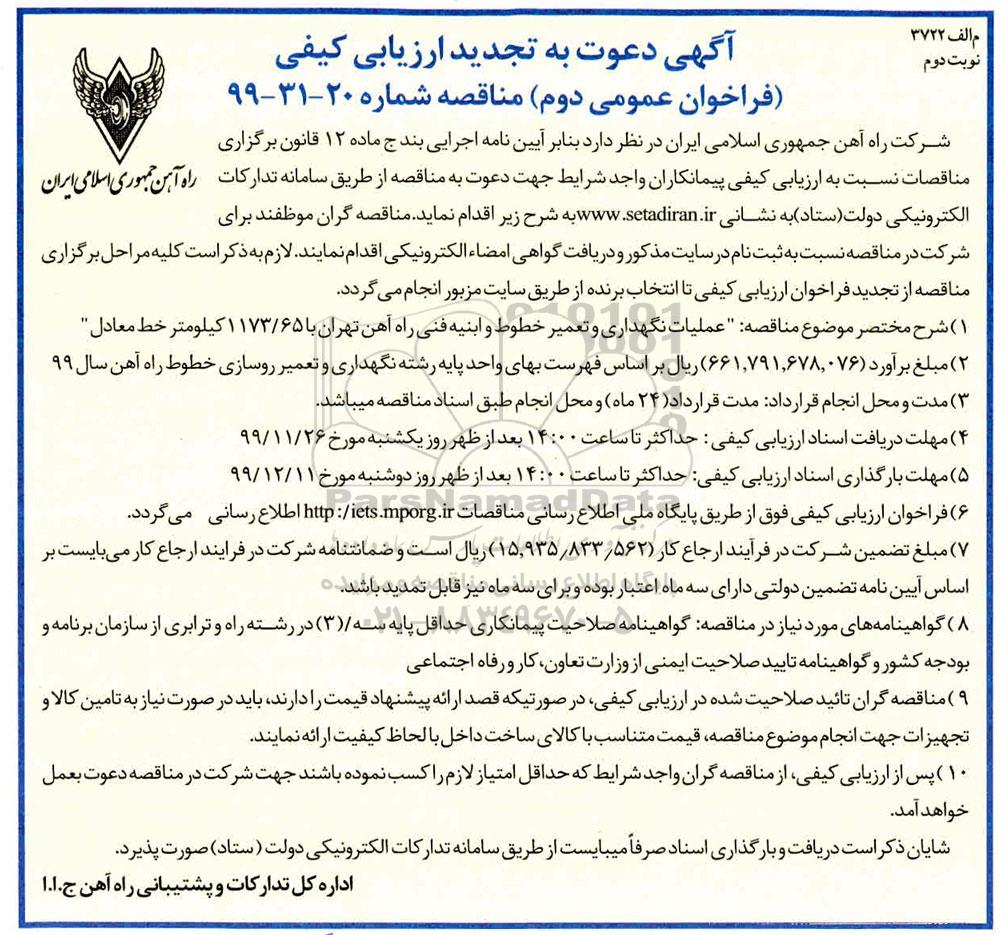 م‌الف ۳۷۲۲
نوبت دوم
آگهی دعوت به تجدید ارزیابی کیفی
(فراخوان عمومی دوم) مناقصه شماره ۲۰-۳۱-۹۹
راه آهن جمهوری اسلامی ایران
شرکت راه آهن جمهوری اسلامی ایران در نظر دارد بنابر آیین نامه اجرایی بند ج ماده ۱۲ قانون برگزاری
مناقصات نسبت به ارزیابی کیفی پیمانکاران واجد شرایط جهت دعوت به مناقصه از طریق سامانه تدارکات
الکترونیکی دولت(ستاد)به نشانی www.setadiran.irبه شرح زیر اقدام نماید.مناقصه گران موظفند برای
شرکت در مناقصه نسبت به ثبت نام در سایت مذکور و دریافت گواهی امضاء الکترونیکی اقدام نمایند. لازم به ذکر است کلیه مراحل برگزاری
مناقصه از تجدید فراخوان ارزیابی کیفی تا انتخاب برنده از طریق سایت مزبور انجام می گردد.
۱)شرح مختصر موضوع مناقصه: "عملیات نگهداری و تعمیر خطوط و ابنیه فنی راه آهن تهران با ۱۱۷۳/۶۵ کیلومتر خط معادل"
۲)مبلغ برآورد (۶۶۱,۷۹۱,۶۷۸,۰۷۶) ریال بر اساس فهرست بهای واحد پایه رشته نگهداری و تعمیر روسازی خطوط راه آهن سال ۹۹
۳)مدت و محل انجام قرارداد: مدت قرارداد(۲۴ ماه) و محل انجام طبق اسناد مناقصه میباشد.
۴)مهلت دریافت اسناد ارزیابی کیفی: حداکثر تا ساعت ۱۴:۰۰ بعد از ظهر روز یکشنبه مورخ ۹۹/۱۱/۲۶
۵)مهلت بارگذاری اسناد ارزیابی کیفی: حداکثر تا ساعت ۱۴:۰۰ بعد از ظهر روز دوشنبه مورخ ۹۹/۱۲/۱۱
۶)فراخوان ارزیابی کیفی فوق از طریق پایگاه ملی اطلاع رسانی مناقصات http:/iets.mporg.ir اطلاع رسانی می گردد.
۷)مبلغ تضمین شرکت در فرآیند ارجاع کار (۱۵,۹۳۵,۸۳۳,۵۶۲) ریال است و ضمانتنامه شرکت در فرایند ارجاع کار می‌بایست بر
اساس آیین نامه تضمین دولتی دارای سه ماه اعتبار بوده و برای سه ماه نیز قابل تمدید باشد.
۸)گواهینامه‌های مورد نیاز در مناقصه: گواهینامه صلاحیت پیمانکاری حداقل پایه سه/(۳) در رشته راه و ترابری از سازمان برنامه و
بودجه کشور و گواهینامه تایید صلاحیت ایمنی از وزارت تعاون، کار و رفاه اجتماعی
۹)مناقصه گران تائید صلاحیت شده در ارزیابی کیفی، در صورتیکه قصد ارائه پیشنهاد قیمت را دارند، باید در صورت نیاز به تامین کالا و
تجهیزات جهت انجام موضوع مناقصه، قیمت متناسب با کالای ساخت داخل با لحاظ کیفیت ارائه نمایند.
۱۰)پس از ارزیابی کیفی، از مناقصه گران واجد شرایط که حداقل امتیاز لازم را کسب نموده باشند جهت شرکت در مناقصه دعوت بعمل
خواهد آمد.
شایان ذکر است دریافت و بارگذاری اسناد صرفاً میبایست از طریق سامانه تدارکات الکترونیکی دولت (ستاد) صورت پذیرد.
اداره کل تدارکات و پشتیبانی راه آهن ج.ا.ا
ParsNamadData
پایگاه اطلاع رسانی مناقصه و مزایده
۰۲۱-۸۸۳۴۹۶۷۰-۵